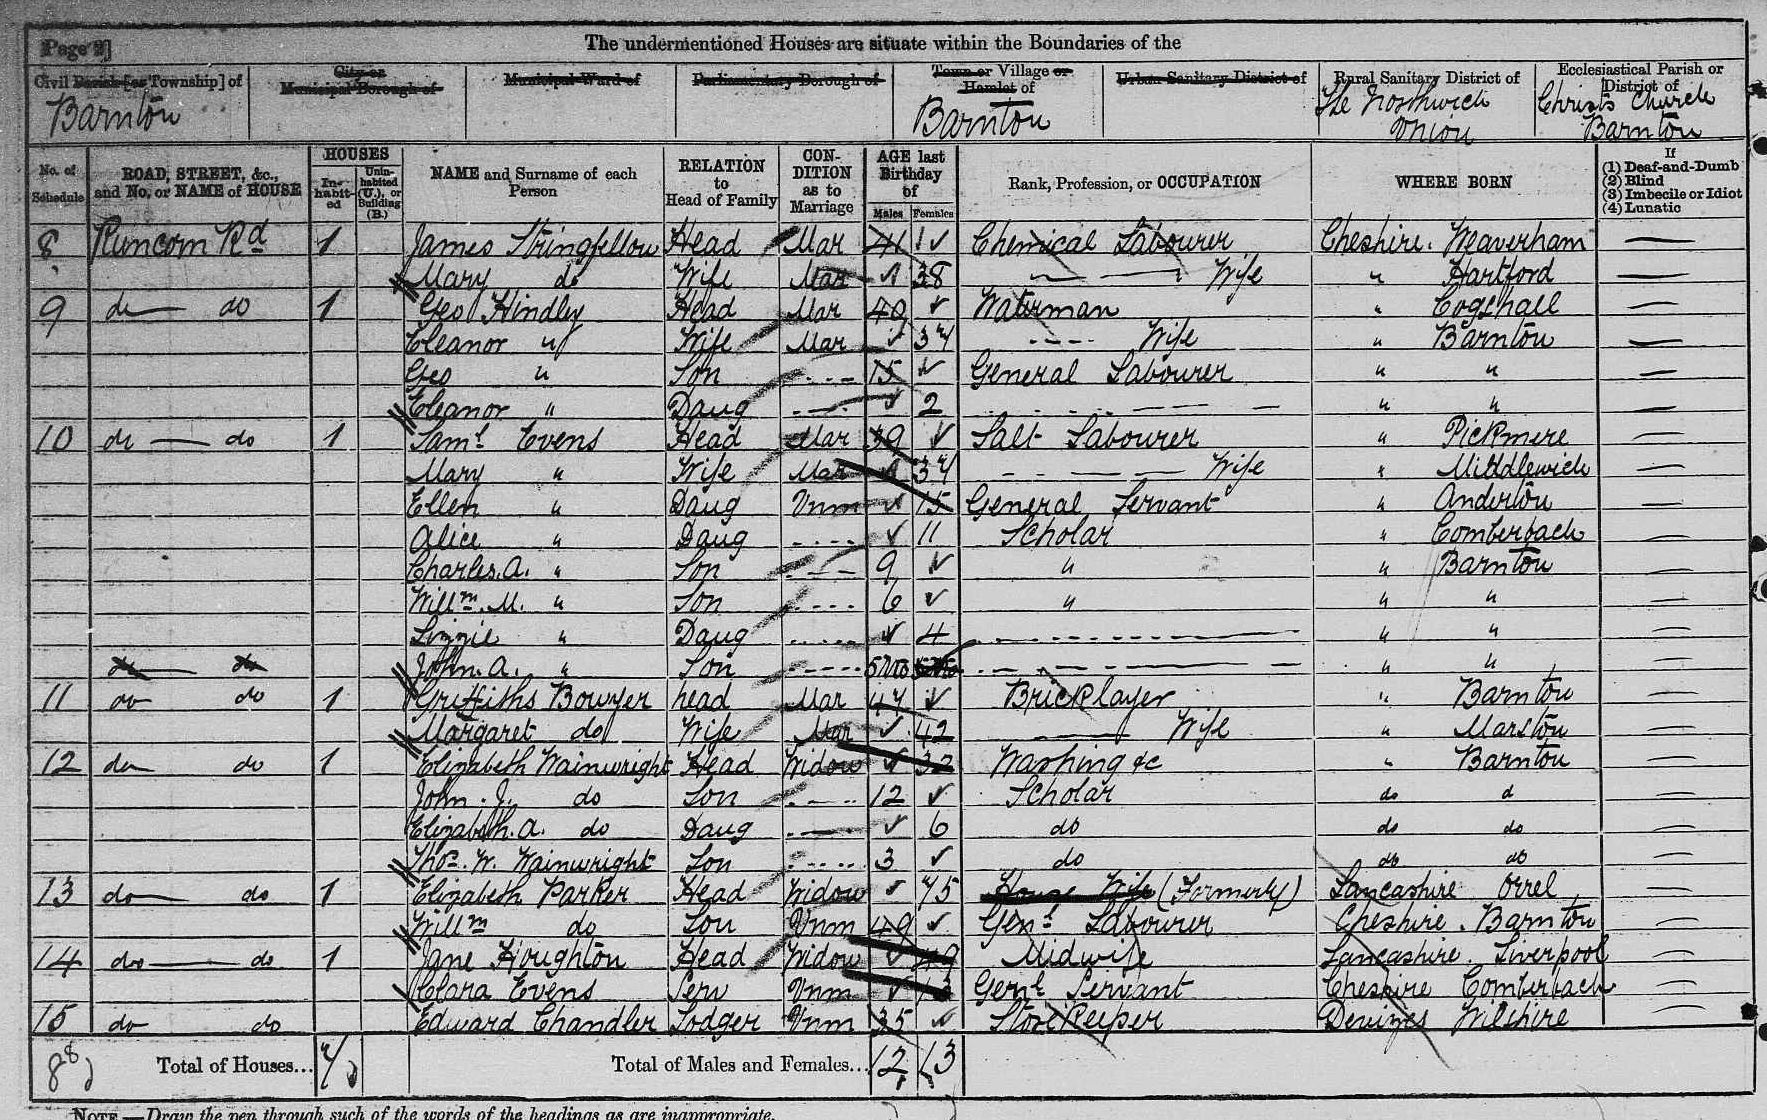 Page 2]
The undermentioned Houses are situate within the Boundaries of the
Civil Parish [or Township] of
Barnton
City or Municipal Borough of
Municipal Ward of
Parliamentary Borough of
Town or Village or Hamlet of
Barnton
Urban Sanitary District of
Rural Sanitary District of
The Northwich Union
Ecclesiastical Parish or District of
Christs Church Barnton
No. of Schedule
ROAD, STREET, &c., and No. or NAME of HOUSE
HOUSES
Inhabited
Uninhabited (U.), or Building (B.)
NAME and Surname of each Person
RELATION to Head of Family
CONDITION as to Marriage
AGE last Birthday of
Males Females
Rank, Profession, or OCCUPATION
WHERE BORN
If
(1) Deaf-and-Dumb
(2) Blind
(3) Imbecile or Idiot
(4) Lunatic
8 Runcorn Rd 1 James Stringfellow Head Mar 41 Chemical Labourer Cheshire. Weaverham —
Mary do Wife Mar 38 — — Wife " Hartford —
9 do — do 1 Geo Hindley Head Mar 40 Waterman " Cogshall —
Eleanor " Wife Mar 37 ---- Wife " Barnton —
Geo " Son ---- 15 General Labourer " " —
Eleanor " Daug ---- 2 ---- " " —
10 do — do 1 Saml Evens Head Mar 39 Salt Labourer " Pickmere —
Mary " Wife Mar 37 ---- Wife " Middlewich —
Ellen " Daug Unm 15 General Servant " Anderton —
Alice " Daug ---- 11 Scholar " Comberbach —
Charles. A. " Son ---- 9 " " Barnton —
Willm. M. " Son ---- 6 " " " —
Lizzie " Daug ---- 4 ---- " " —
do — do John. A. " Son ---- 5mo ---- " " —
11 do do 1 Griffiths Bowyer head Mar 47 Bricklayer " Barnton —
Margaret do Wife Mar 42 —— Wife " Marston —
12 do do 1 Elizabeth Wainwright Head Widow 32 Washing &c " Barnton —
John. J. do Son ---- 12 Scholar do d —
Elizabeth. A. do Daug ---- 6 do do do —
Thos. W. Wainwright Son ---- 3 do do do —
13 do — do 1 Elizabeth Parker Head Widow 75 House Wife (Formerly) Lancashire Orrel —
Willm do Son Unm 49 Genl Labourer Cheshire. Barnton —
14 do — do 1 Jane Houghton Head Widow 49 Midwife Lancashire. Liverpool —
Clara Evens Serv Unm 13 Genl Servant Cheshire Comberbach —
15 do do Edward Chandler Lodger Unm 35 Store Keeper Devizes Wilshire —
Total of Houses... 7
Total of Males and Females... 12 13
NOTE.—Draw the pen through such of the words of the headings as are inappropriate.